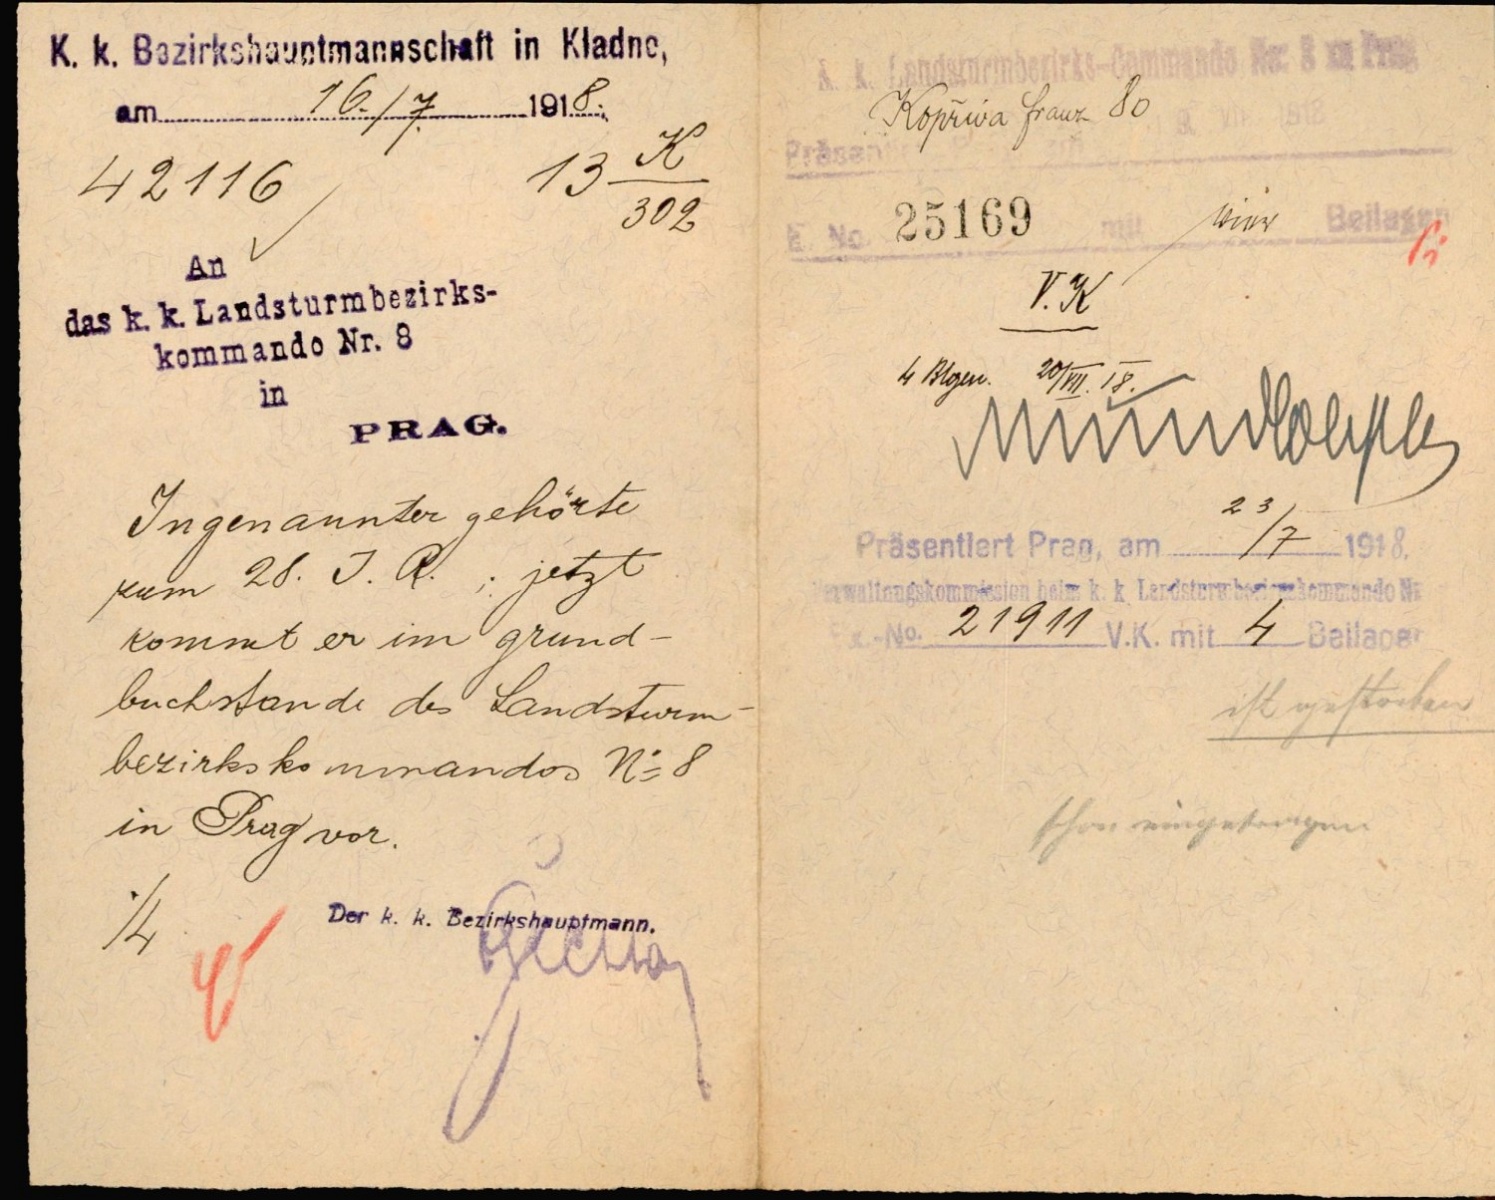 K. k. Bezirkshauptmannschaft in Kladno,
am 16./7. 1918.
42116 13 K
302
An
das k. k. Landsturmbezirks-
kommando Nr. 8
in
PRAG.
Ingenannter gehörte
zum 28. I. R. ; jetzt
kommt er im grund-
buchstande des Landsturm-
bezirkskommandos No 8
in Prag vor.
./4
Der k. k. Bezirkshauptmann.
k. k. Landsturmbezirks-Commando No. 8 zu Prag
Kopřiva Franz 80
Präsent 9. VII 1918
E. No. 25169 mit Beilagen
V. K
4 Blgen. 20/VII. 18.
Präsentiert Prag, am 23/7 1918.
Verwaltungskommission beim k. k. Landsturmbezirkskommando Nr
Ex.-No. 21911 V.K. mit 4 Beilagen
ist gestorben
schon eingetragen